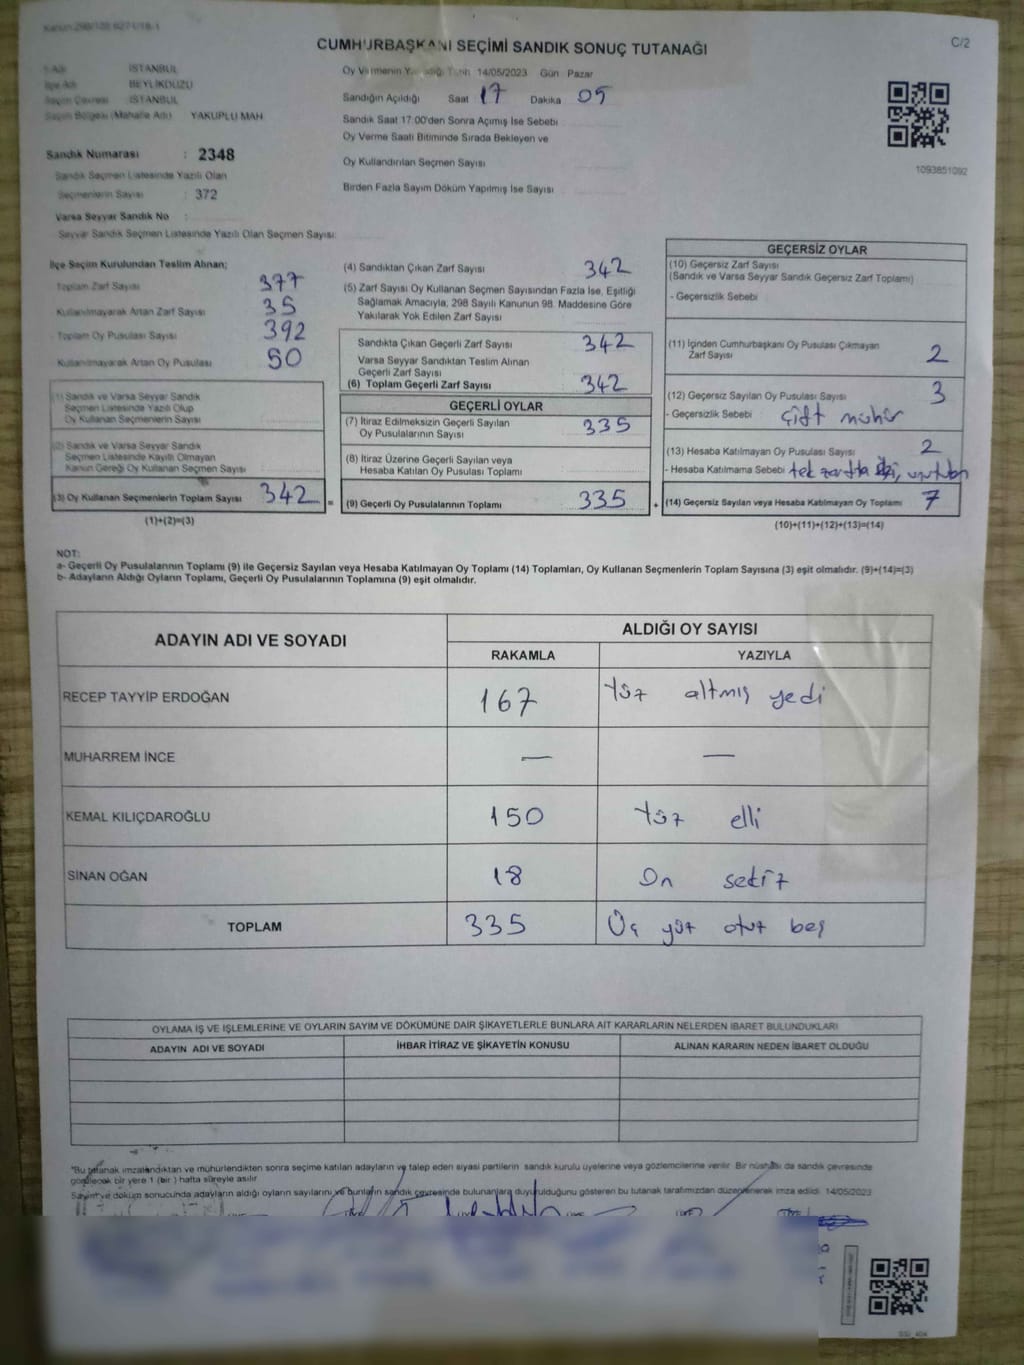 CUMHURBAŞKANI SEÇİMİ SANDIK SONUÇ TUTANAĞI
C/2
İSTANBUL
BEYLİKDÜZÜ
İSTANBUL
Seçim Bölgesi (Mahalle Adı) YAKUPLU MAH
Sandık Numarası : 2348
Sandık Seçmen Listesinde Yazılı Olan
Seçmenlerin Sayısı : 372
Varsa Seyyar Sandık No :
Seyyar Sandık Seçmen Listesinde Yazılı Olan Seçmen Sayısı:
Oy Vermenin 14/05/2023 Gün Pazar
Sandığın Açıldığı Saat 17 Dakika 05
Sandık Saat 17:00'den Sonra Açımış İse Sebebi
Oy Verme Saati Bitiminde Sırada Bekleyen ve
Oy Kullandırılan Seçmen Sayısı
Birden Fazla Sayım Döküm Yapılmış İse Sayısı
1093851092
İlçe Seçim Kurulundan Teslim Alınan;
Toplam Zarf Sayısı 377
Kullanılmayarak Artan Zarf Sayısı 35
Toplam Oy Pusulası Sayısı 392
Kullanılmayarak Artan Oy Pusulası 50
(1) Sandık ve Varsa Seyyar Sandık
Seçmen Listesinde Yazılı Olup
Oy Kullanan Seçmenlerin Sayısı
(2) Sandık ve Varsa Seyyar Sandık
Seçmen Listesinde Kayıtlı Olmayan
Kanun Gereği Oy Kullanan Seçmen Sayısı
(3) Oy Kullanan Seçmenlerin Toplam Sayısı 342 =
(1)+(2)=(3)
(4) Sandıktan Çıkan Zarf Sayısı 342
(5) Zarf Sayısı Oy Kullanan Seçmen Sayısından Fazla İse, Eşitliği
Sağlamak Amacıyla, 298 Sayılı Kanunun 98. Maddesine Göre
Yakılarak Yok Edilen Zarf Sayısı
Sandıkta Çıkan Geçerli Zarf Sayısı 342
Varsa Seyyar Sandıktan Teslim Alınan
Geçerli Zarf Sayısı
(6) Toplam Geçerli Zarf Sayısı 342
GEÇERLİ OYLAR
(7) İtiraz Edilmeksizin Geçerli Sayılan
Oy Pusulalarının Sayısı 335
(8) İtiraz Üzerine Geçerli Sayılan veya
Hesaba Katılan Oy Pusulası Toplamı
(9) Geçerli Oy Pusulalarının Toplamı 335 +
GEÇERSİZ OYLAR
(10) Geçersiz Zarf Sayısı
(Sandık ve Varsa Seyyar Sandık Geçersiz Zarf Toplamı)
- Geçersizlik Sebebi
(11) İçinden Cumhurbaşkanı Oy Pusulası Çıkmayan
Zarf Sayısı 2
(12) Geçersiz Sayılan Oy Pusulası Sayısı 3
- Geçersizlik Sebebi çift mühür
(13) Hesaba Katılmayan Oy Pusulası Sayısı 2
- Hesaba Katılmama Sebebi tek zarfta
(14) Geçersiz Sayılan veya Hesaba Katılmayan Oy Toplamı 7
(10)+(11)+(12)+(13)=(14)
NOT:
a- Geçerli Oy Pusulalarının Toplamı (9) ile Geçersiz Sayılan veya Hesaba Katılmayan Oy Toplamı (14) Toplamları, Oy Kullanan Seçmenlerin Toplam Sayısına (3) eşit olmalıdır. (9)+(14)=(3)
b- Adayların Aldığı Oyların Toplamı, Geçerli Oy Pusulalarının Toplamına (9) eşit olmalıdır.
ADAYIN ADI VE SOYADI ALDIĞI OY SAYISI
RAKAMLA YAZIYLA
RECEP TAYYİP ERDOĞAN 167 Yüz altmış yedi
MUHARREM İNCE — —
KEMAL KILIÇDAROĞLU 150 Yüz elli
SİNAN OĞAN 18 On sekiz
TOPLAM 335 Üç yüz otuz beş
OYLAMA İŞ VE İŞLEMLERİNE VE OYLARIN SAYIM VE DÖKÜMÜNE DAİR ŞİKAYETLERLE BUNLARA AİT KARARLARIN NELERDEN İBARET BULUNDUKLARI
ADAYIN ADI VE SOYADI İHBAR İTİRAZ VE ŞİKAYETİN KONUSU ALINAN KARARIN NEDEN İBARET OLDUĞU
"Bu tutanak imzalandıktan ve mühürlendikten sonra seçime katılan adayların ve talep eden siyasi partilerin sandık kurulu üyelerine veya gözlemcilerine verilir. Bir nüshası da sandık çevresinde
görülecek bir yere 1 (bir) hafta süreyle asılır
Sayım ve döküm sonucunda adayların aldığı oyların sayılarını ve bunların sandık çevresinde bulunanlara duyurulduğunu gösteren bu tutanak tarafımızdan düzenlenerek imza edildi. 14/05/2023